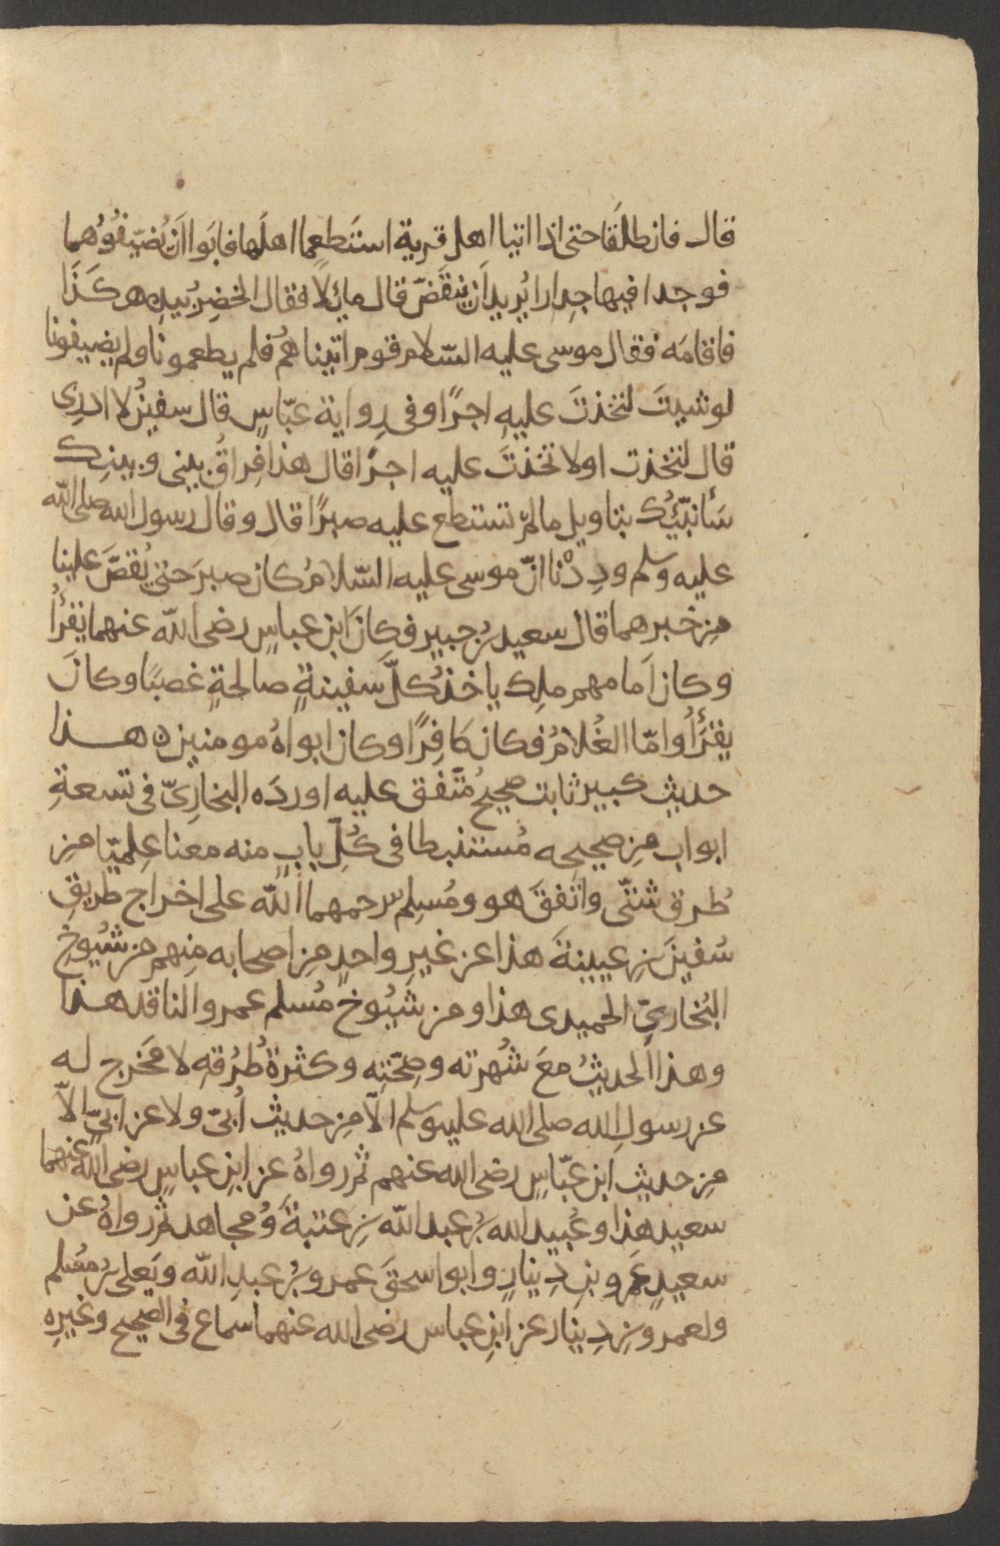 قال فانطلقا حتى اذا اتيا اهل قرية استطعما اهلها فابوا ان يُضيّفُوهما
فوجدا فيها جِدارا يُريد اَن ينقَضّ قال مائلًا فقال الخضِرُ بيدِه هكَذَا
فاقامَه فقال موسى عليه السّلام قوم اتينا همُ فلم يطعمونا ولم يضيفونا
لو شيتَ لتخذتَ عليهِ اجرًا وفى رِواية عبّاسٍ قال سفينُ لا ادرِى
قال لتخذت اولا تخذتَ عليه اجرًا قال هذا فِراقُ بينى وبينِك
سَأنبّئُك بتاويل ما لمْ تستطع عليه صبرًا قال وقال رسول الله صلى الله
عليه وسلم ودِدْنا انّ موسى عليه السّلامُ كان صبرَ حتى يُقصَّ علينا
مِن خبرهما قال سعيد بن جبير فكانَ ابن عباسٍ رضى الله عنهما يقرأُ
وكان اَمامهم ملِك ياخذ كلَّ سَفينةٍ صالحةٍ غصبًا وكانَ
يقرَأُ وامّا الغُلامُ فكان كَافِرًا وكان ابواهُ مومنين ه هـذا
حديث كبير ثابت صحيحُ مُتّفق عليه اوردَه البخارِىّ فى تسعةِ
ابواب مِن صحيحِه مُستنبطا فى كُلِّ بابٍ منه معنا عِلميّا مِن
طُرق شتّى واتّفقَ هو ومُسِلم رحمهما الله على اخراج طريقِ
سُفينَ بنِ عيينةَ هذا عن غيرِ واحدٍ مِن اصحابه مِنهم من شيُوخِ
البُخارىّ الحميدى هذا ومن شيُوخ مُسلم عمرو الناقد هـذا
وهذا الحديثُ معَ شُهرته وصِحّتِه وكثرةُ طُرُقهِ لا مخَرج لـه
عن رسولِ الله صلى الله عليه وسلم الّا مِن حديث اُبىّ ولا عن ابىٍّ الّا
مِن حديث ابن عبّاسٍ رضى الله عنهم ثم رواهُ عن ابنِ عباسٍ رضى الله عنهما
سعيد هذا وعُبيد الله بنُ عبد الله بنِ عتبةَ وُمجاهد ثم رواهُ عن
سعيدٍ عَمرو بنِ دِينارٍ وابو اسحقَ عمرو بنُ عبدِ الله ويَعلى بنُ مُسلم
ولعمرو بنِ دِينار عن ابنِ عباس رضى الله عنهما سَماع فى الصحيح وغيرِه